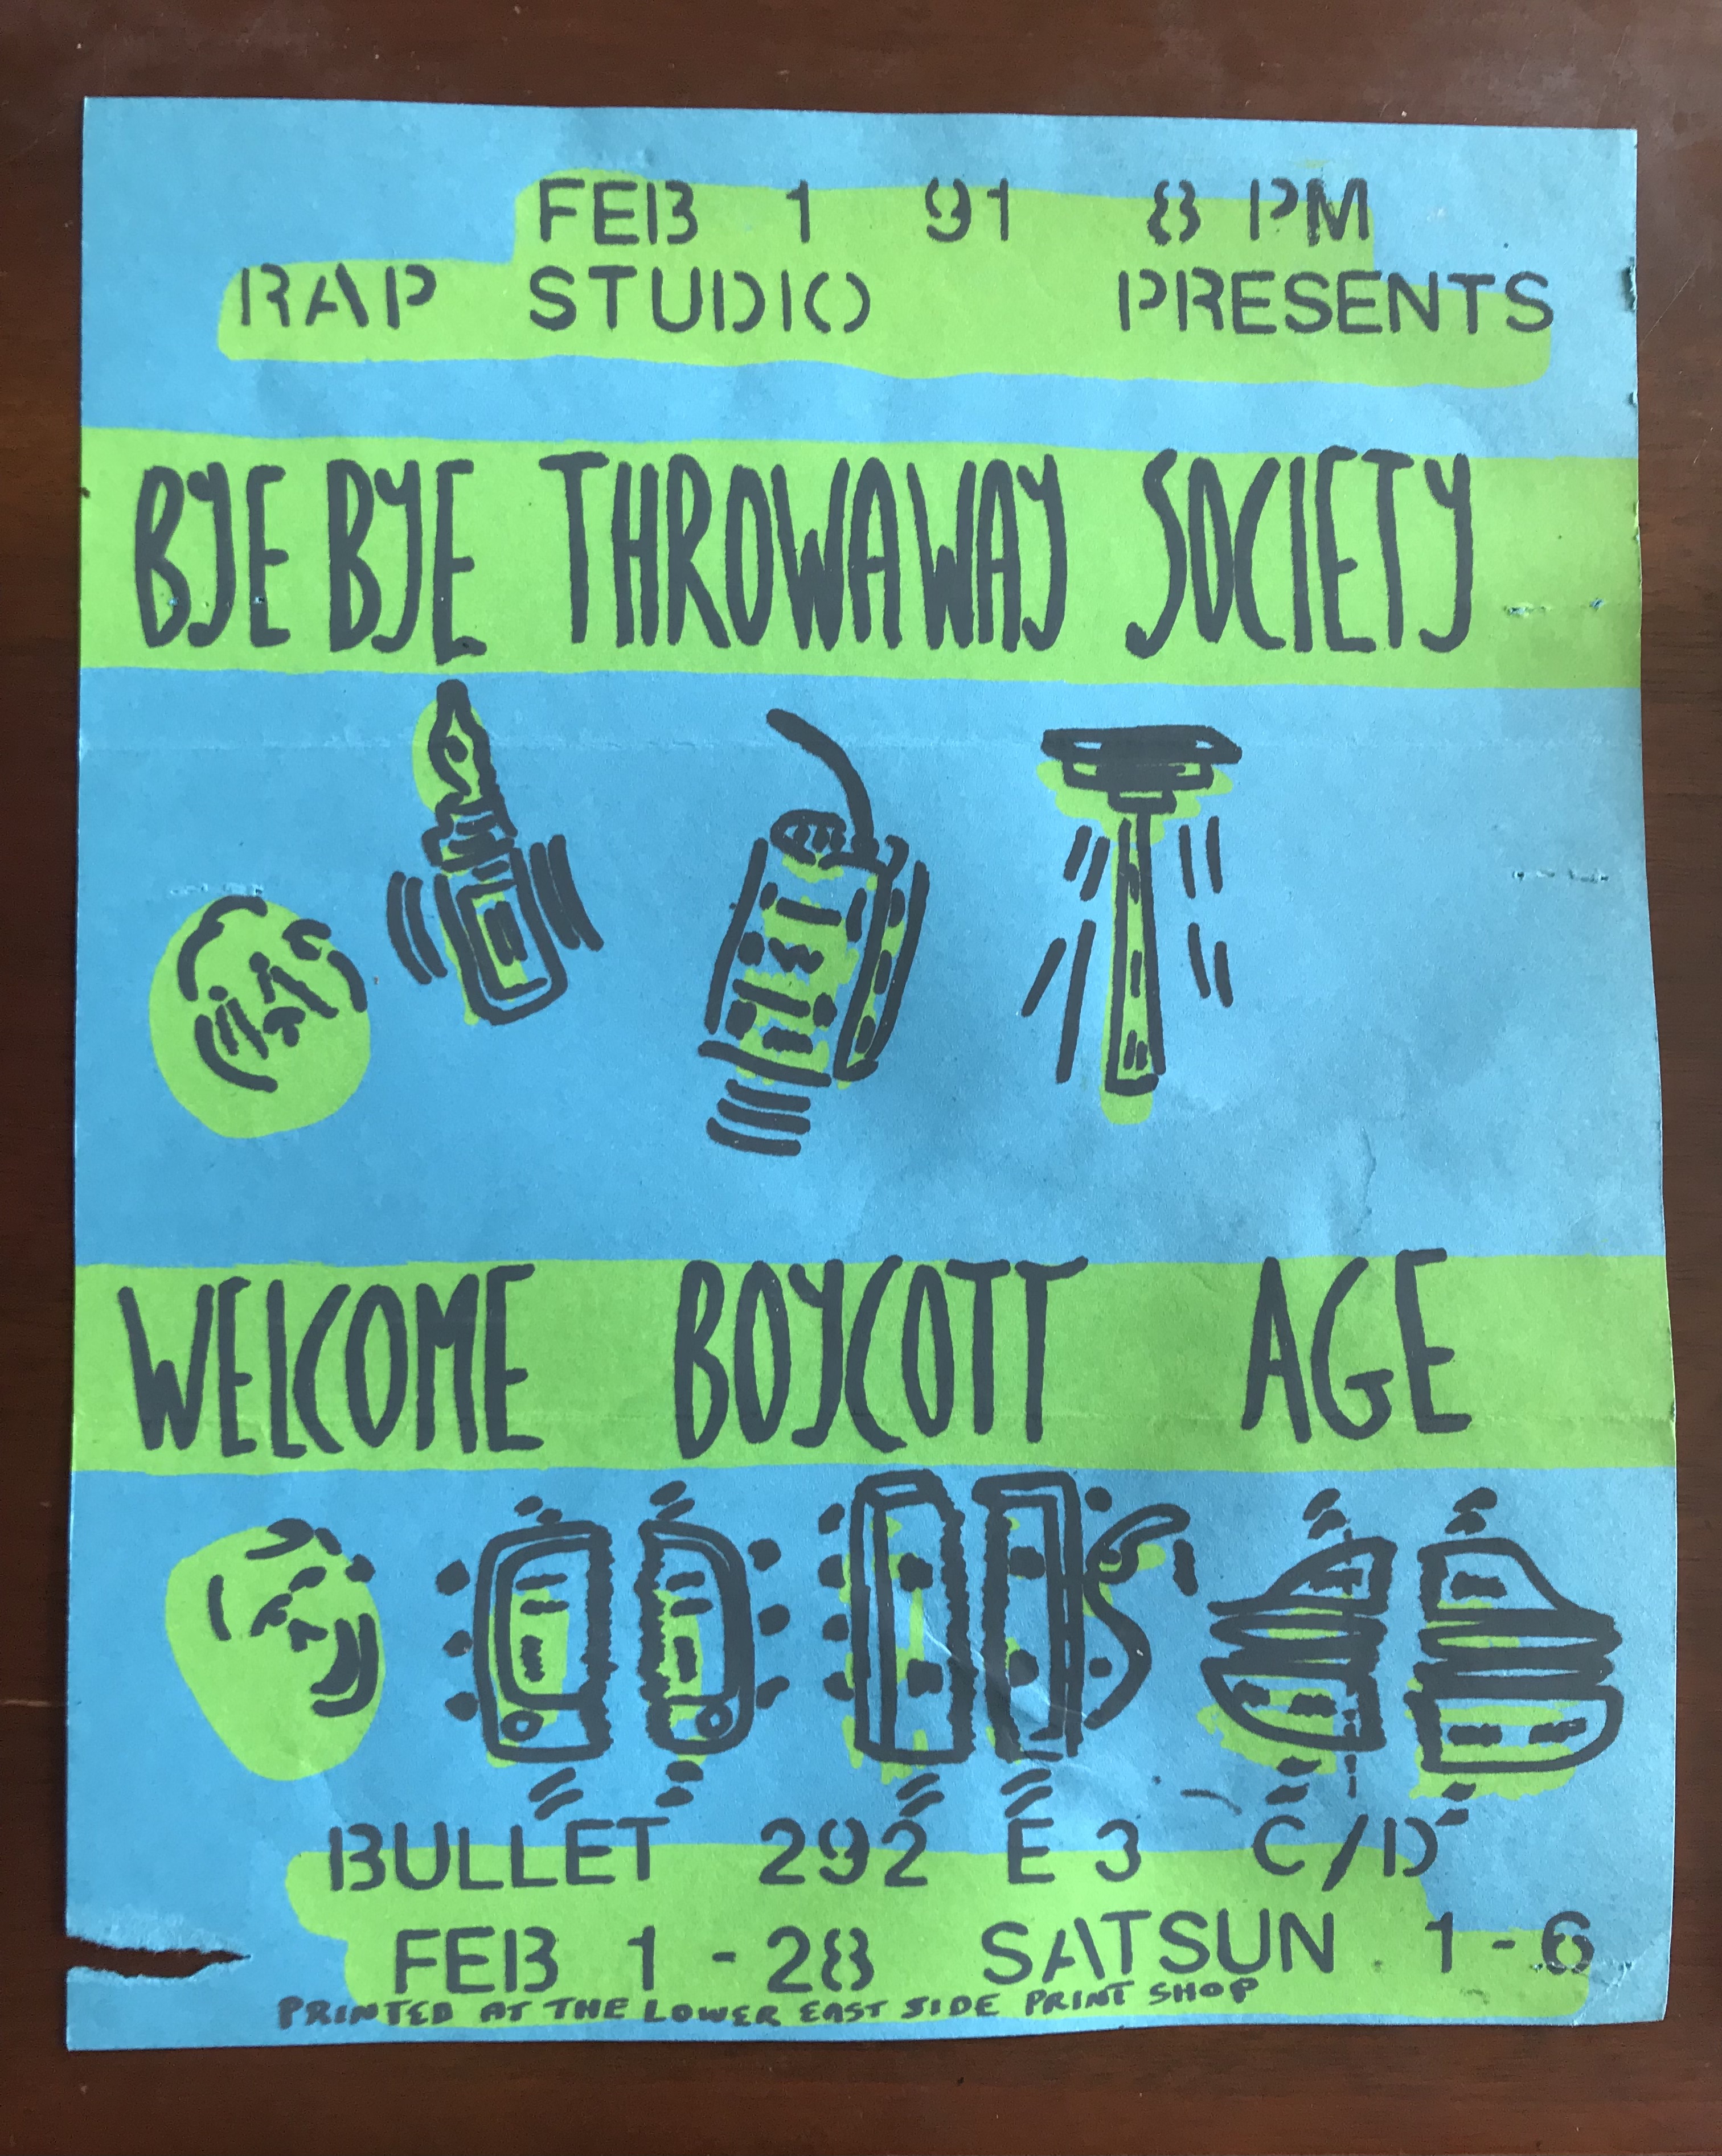 FEB 1 91 8 PM
RAP STUDIO PRESENTS
BYE BYE THROWAWAY SOCIETY
WELCOME BOYCOTT AGE
BULLET 292 E 3 C/D
FEB 1 - 28 SATSUN 1 - 6
PRINTED AT THE LOWER EAST SIDE PRINT SHOP